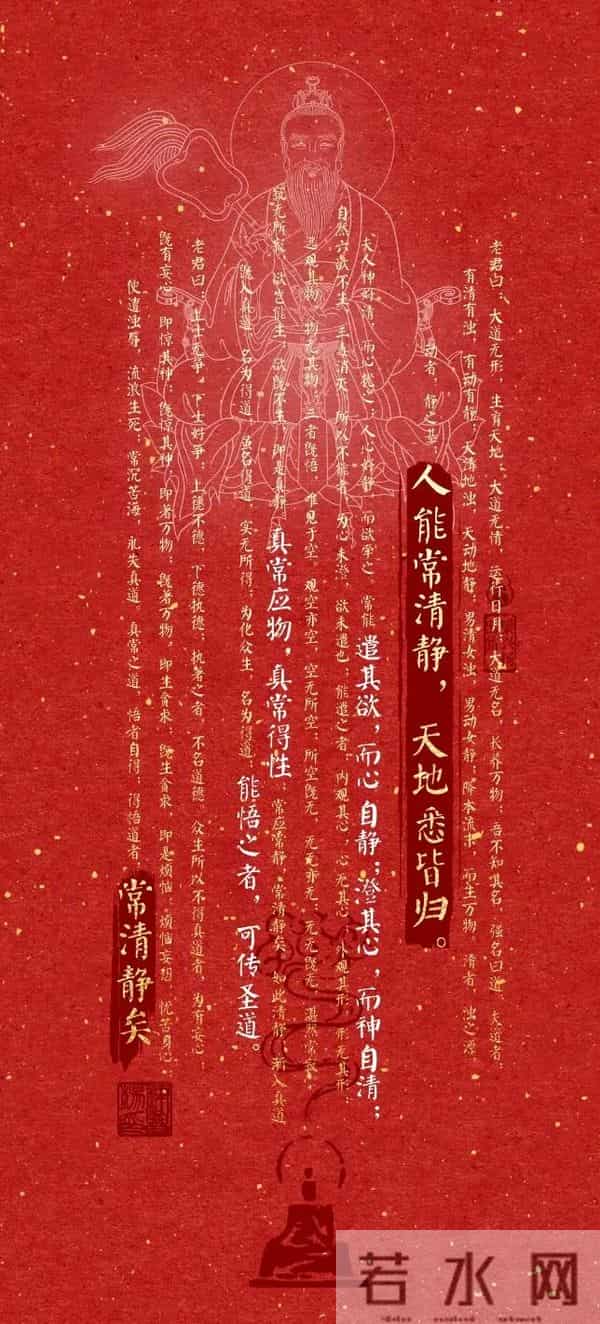 老君曰：大道无形，生育天地；大道无情，运行日月；大道无名，长养万物；吾不知其名，强名曰道。夫道者：
有清有浊，有动有静；天清地浊，天动地静；男清女浊，男动女静；降本流末，而生万物。清者，浊之源，
动者，静之基。人能常清静，天地悉皆归。
夫人神好清，而心扰之；人心好静，而欲牵之。常能遣其欲，而心自静；澄其心，而神自清；
自然六欲不生，三毒消灭。所以不能者，为心未澄，欲未遣也；能遣之者，内观其心，心无其心；外观其形，形无其形；
远观其物，物无其物；三者既悟，唯见于空。观空亦空，空无所空；所空既无，无无亦无；无无既无，湛然常寂；
寂无所寂，欲岂能生；欲既不生，即是真静。真常应物，真常得性；常应常静，常清静矣。如此清静，渐入真道；
既入真道，名为得道，虽名得道，实无所得；为化众生，名为得道；能悟之者，可传圣道。
老君曰：上士无争，下士好争；上德不德，下德执德；执著之者，不名道德。众生所以不得真道者，为有妄心；
既有妄心，即惊其神；既惊其神，即著万物；既著万物，即生贪求；既生贪求，即是烦恼；烦恼妄想，忧苦身心；
便遭浊辱，流浪生死；常沉苦海，永失真道。真常之道，悟者自得；得悟道者，常清静矣
若水网